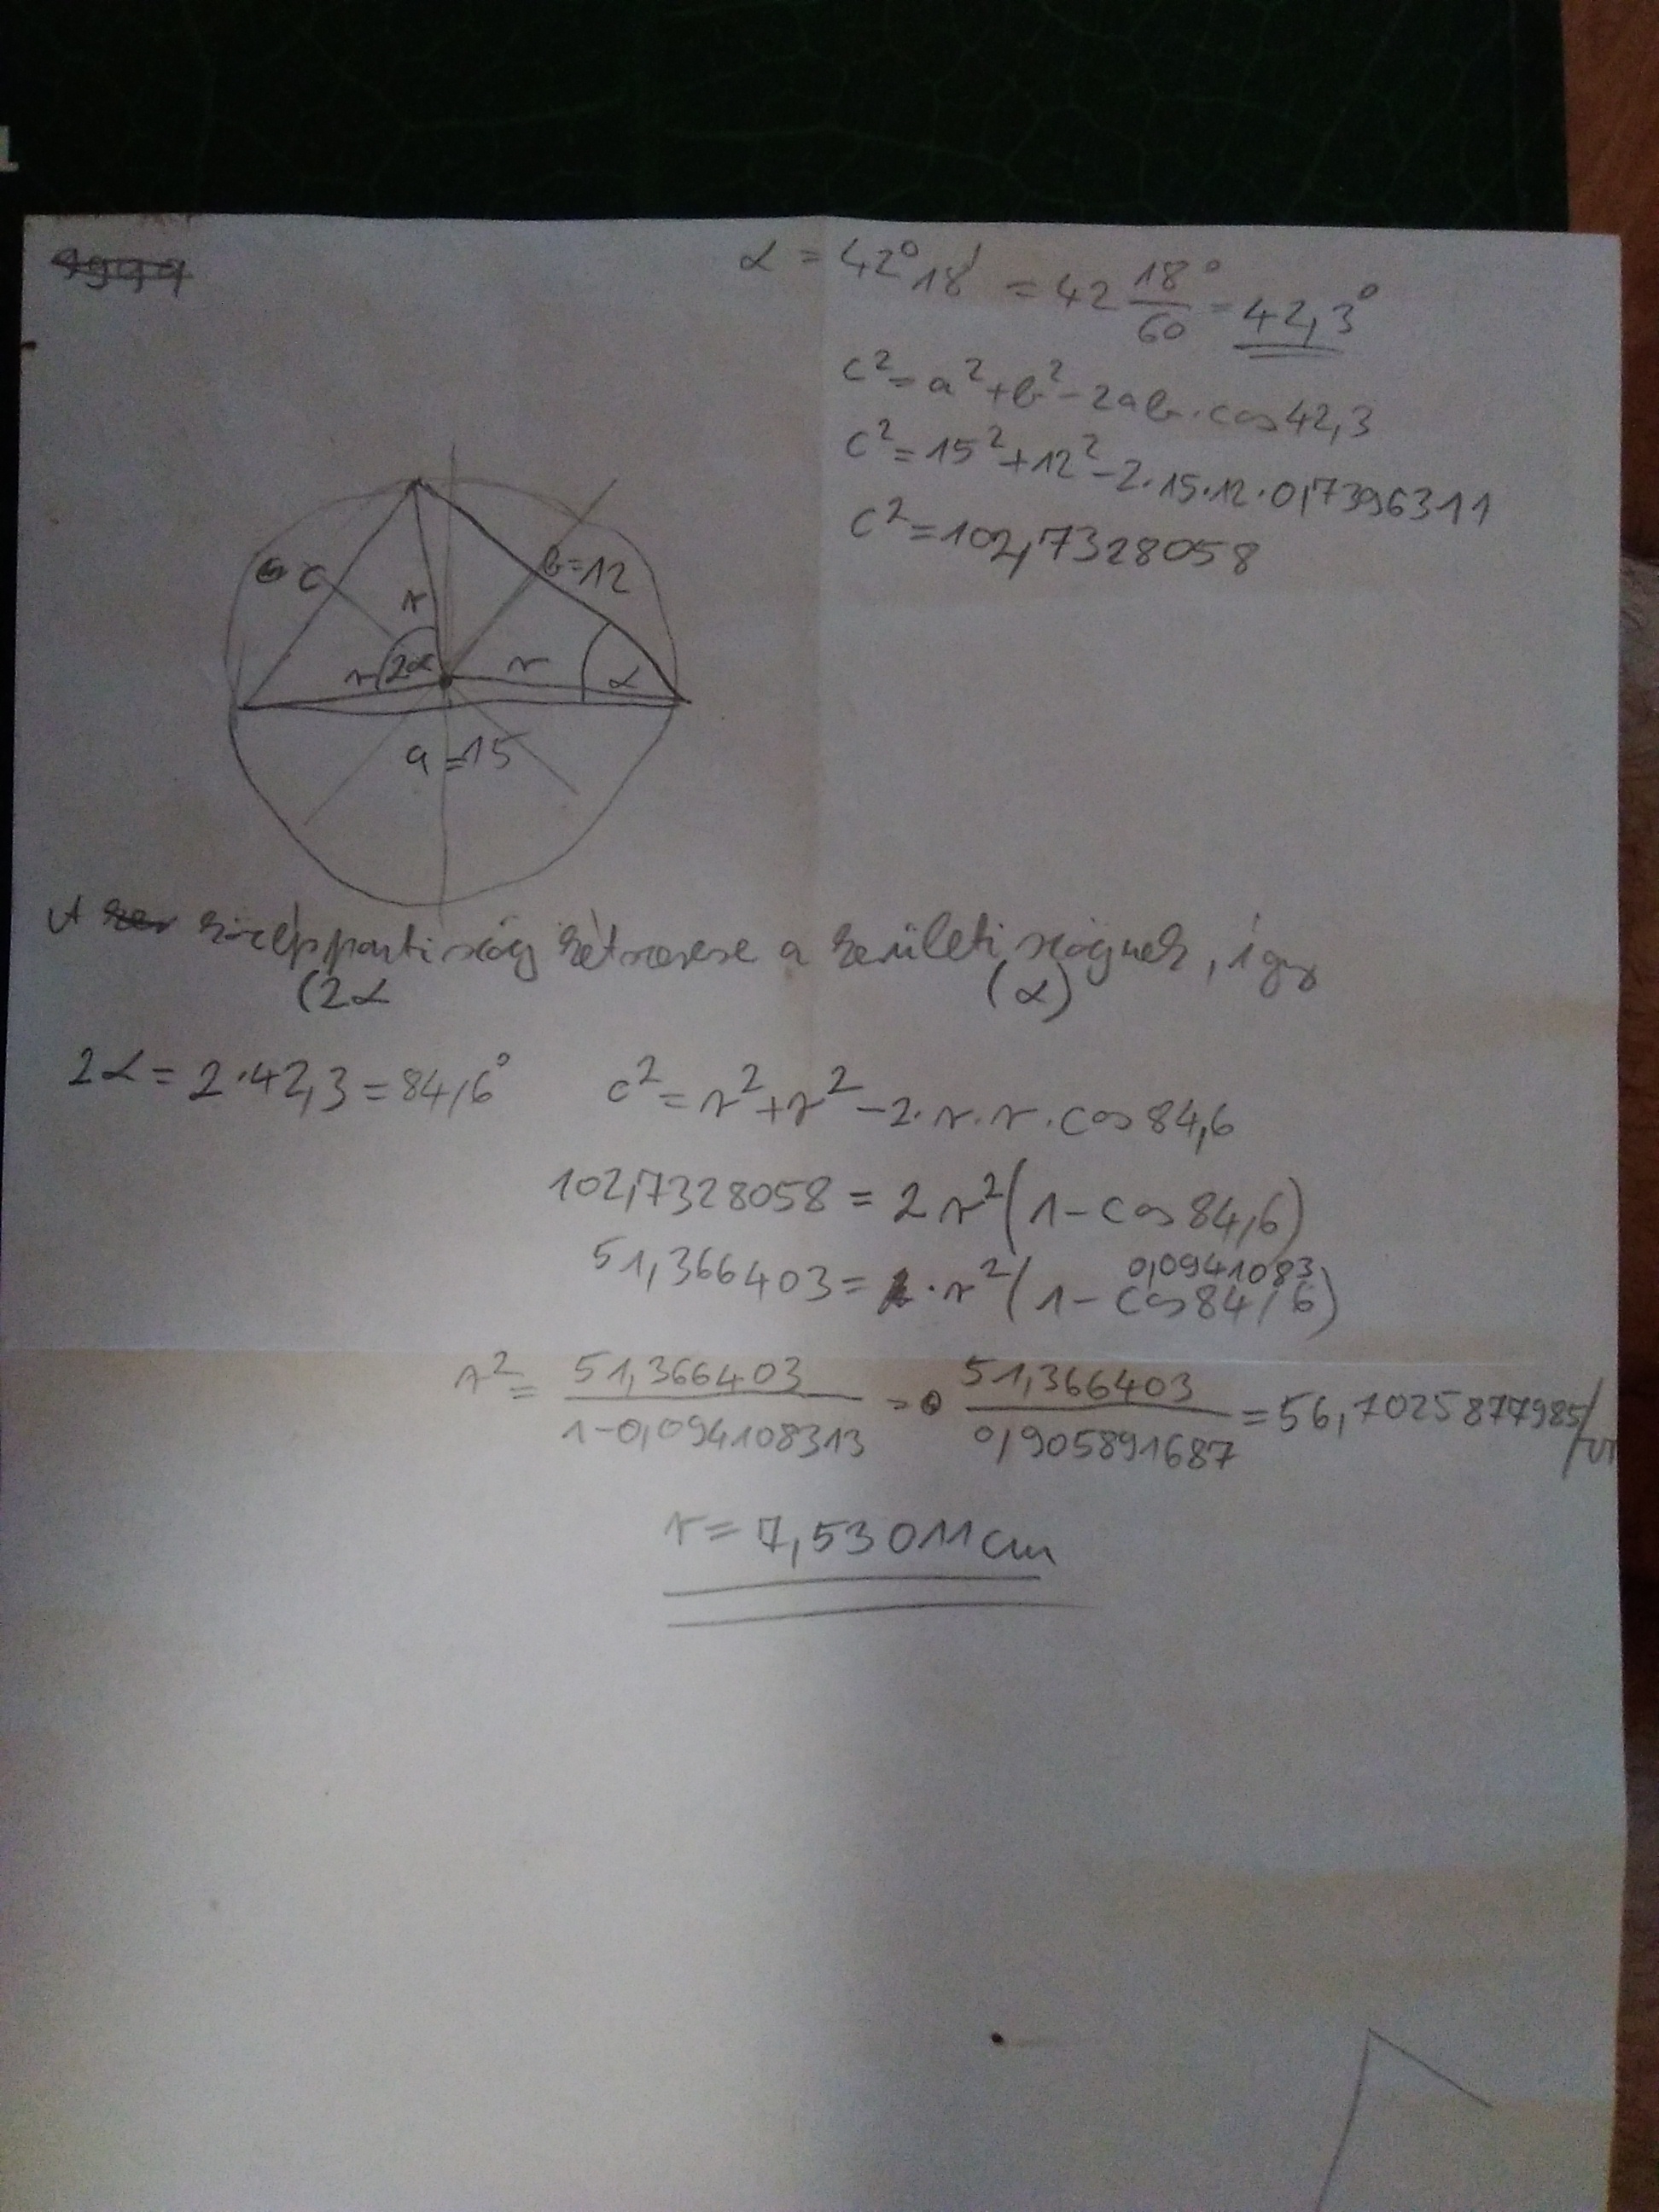 α = 42°18' = 42 18/60° = 42,3°
c² = a² + b² - 2ab · cos 42,3
c² = 15² + 12² - 2 · 15 · 12 · 0,7396311
c² = 102,7328058
c
b = 12
r
r
2α
r
α
a = 15
A középponti szög kétszerese a kerületi szögnek, így
(2α
(α)
2α = 2 · 42,3 = 84,6°
c² = r² + r² - 2 · r · r · cos 84,6
102,7328058 = 2r²(1 - cos 84,6)
0,0941083
51,366403 = · r²(1 - cos 84,6)
r² = 51,366403 / 1-0,094108313 = 51,366403 / 0,905891687 = 56,7025877985/
r = 7,53011 cm